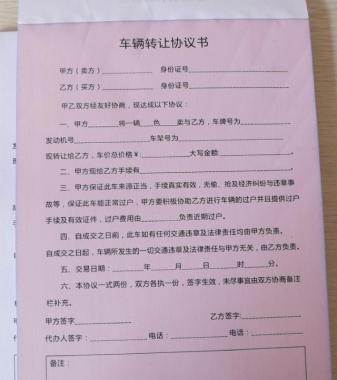 车辆转让协议书
甲方（卖方）______________ 身份证号______________
乙方（买方）______________ 身份证号______________
甲乙双方经友好协商，现达成以下协议：
一、甲方______将一辆___色___卖与乙方，车牌号为______
发动机号______________车架号为______________
现转让给乙方，车价总价格￥:__________大写金额:__________
二、甲方现给乙方手续有______________
三、甲方保证此车来源正当，手续真实有效，无偷、抢及经济纠纷与违章事
故等，保证此车能正常过户，甲方要积极协助乙方进行车辆的过户并且提供过户
手续及有效证件，过户费用由______负责近期过户。
四、自成交之日前，此车如有任何交通违章及法律责任均由甲方负责。
自成交之日起，车辆所发生的一切交通违章及法律责任与甲方无关，由乙方负责。
五、交易日期：______年____月____日____时____分。
六、本协议一式两份，双方各执一份，签字生效，未尽事宜由双方协商备注
栏补充。
甲方签字__________ 乙方签字:__________
代办人签字：__________电话：__________电话：__________
备注：